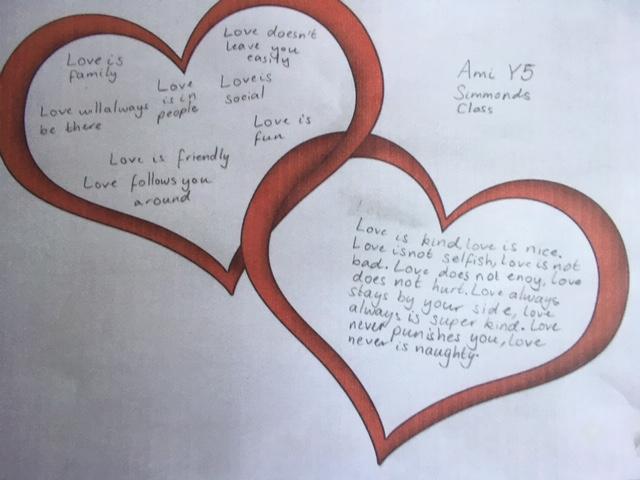 Love doesn't
leave you
easily
Love is
family
Love
is in
people
Love is
social
Love will always
be there
Love is
fun
Love is friendly
Love follows you
around
Ami Y5
Simmonds
Class
Love is kind, love is nice.
Love is not selfish, love is not
bad. Love does not enoy, love
does not hurt. Love always
stays by your side, love
always is super kind. Love
never punishes you, love
never is naughty.